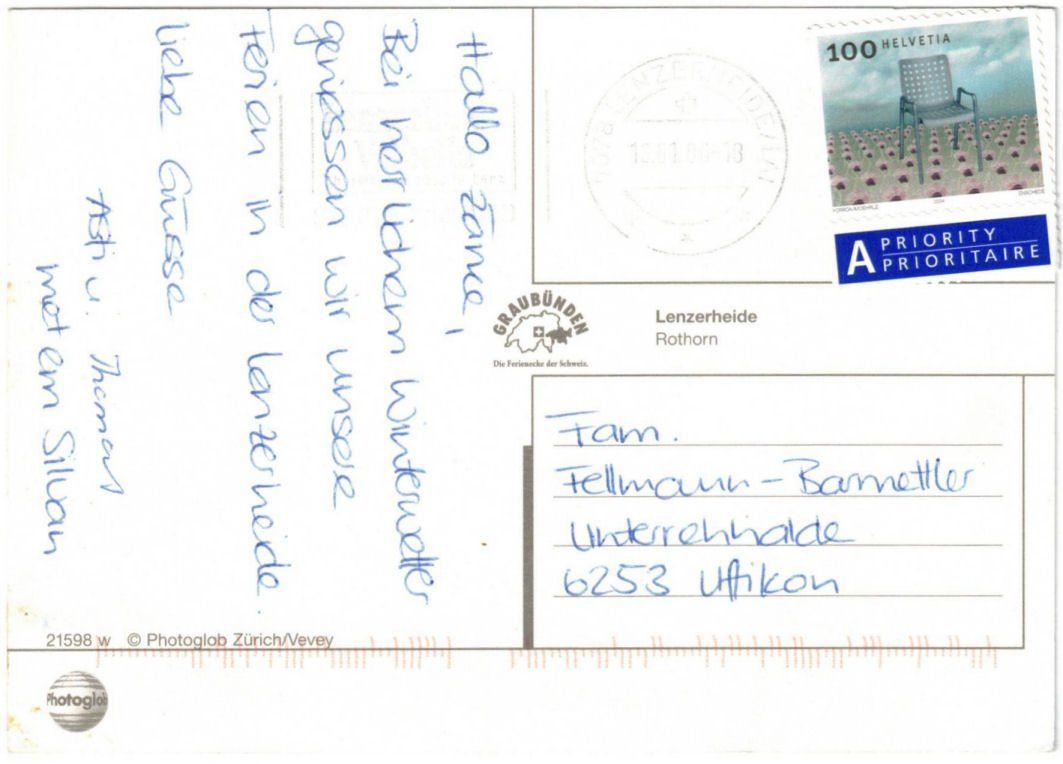 Hallo zäme,
Bei herrlichem Winterwetter
geniessen wir unsere
Ferien in der Lenzerheide.
Liebe Grüsse
Asti u. Thomas
met em Silvan
21598 w © Photoglob Zürich/Vevey
Photoglob
7078 LENZERHEIDE/LAI
100 HELVETIA
2004
A PRIORITY
PRIORITAIRE
GRAUBÜNDEN
Die Ferienecke der Schweiz.
Lenzerheide
Rothorn
Fam.
Fellmann - Barmettler
Unterrehhalde
6253 Uffikon